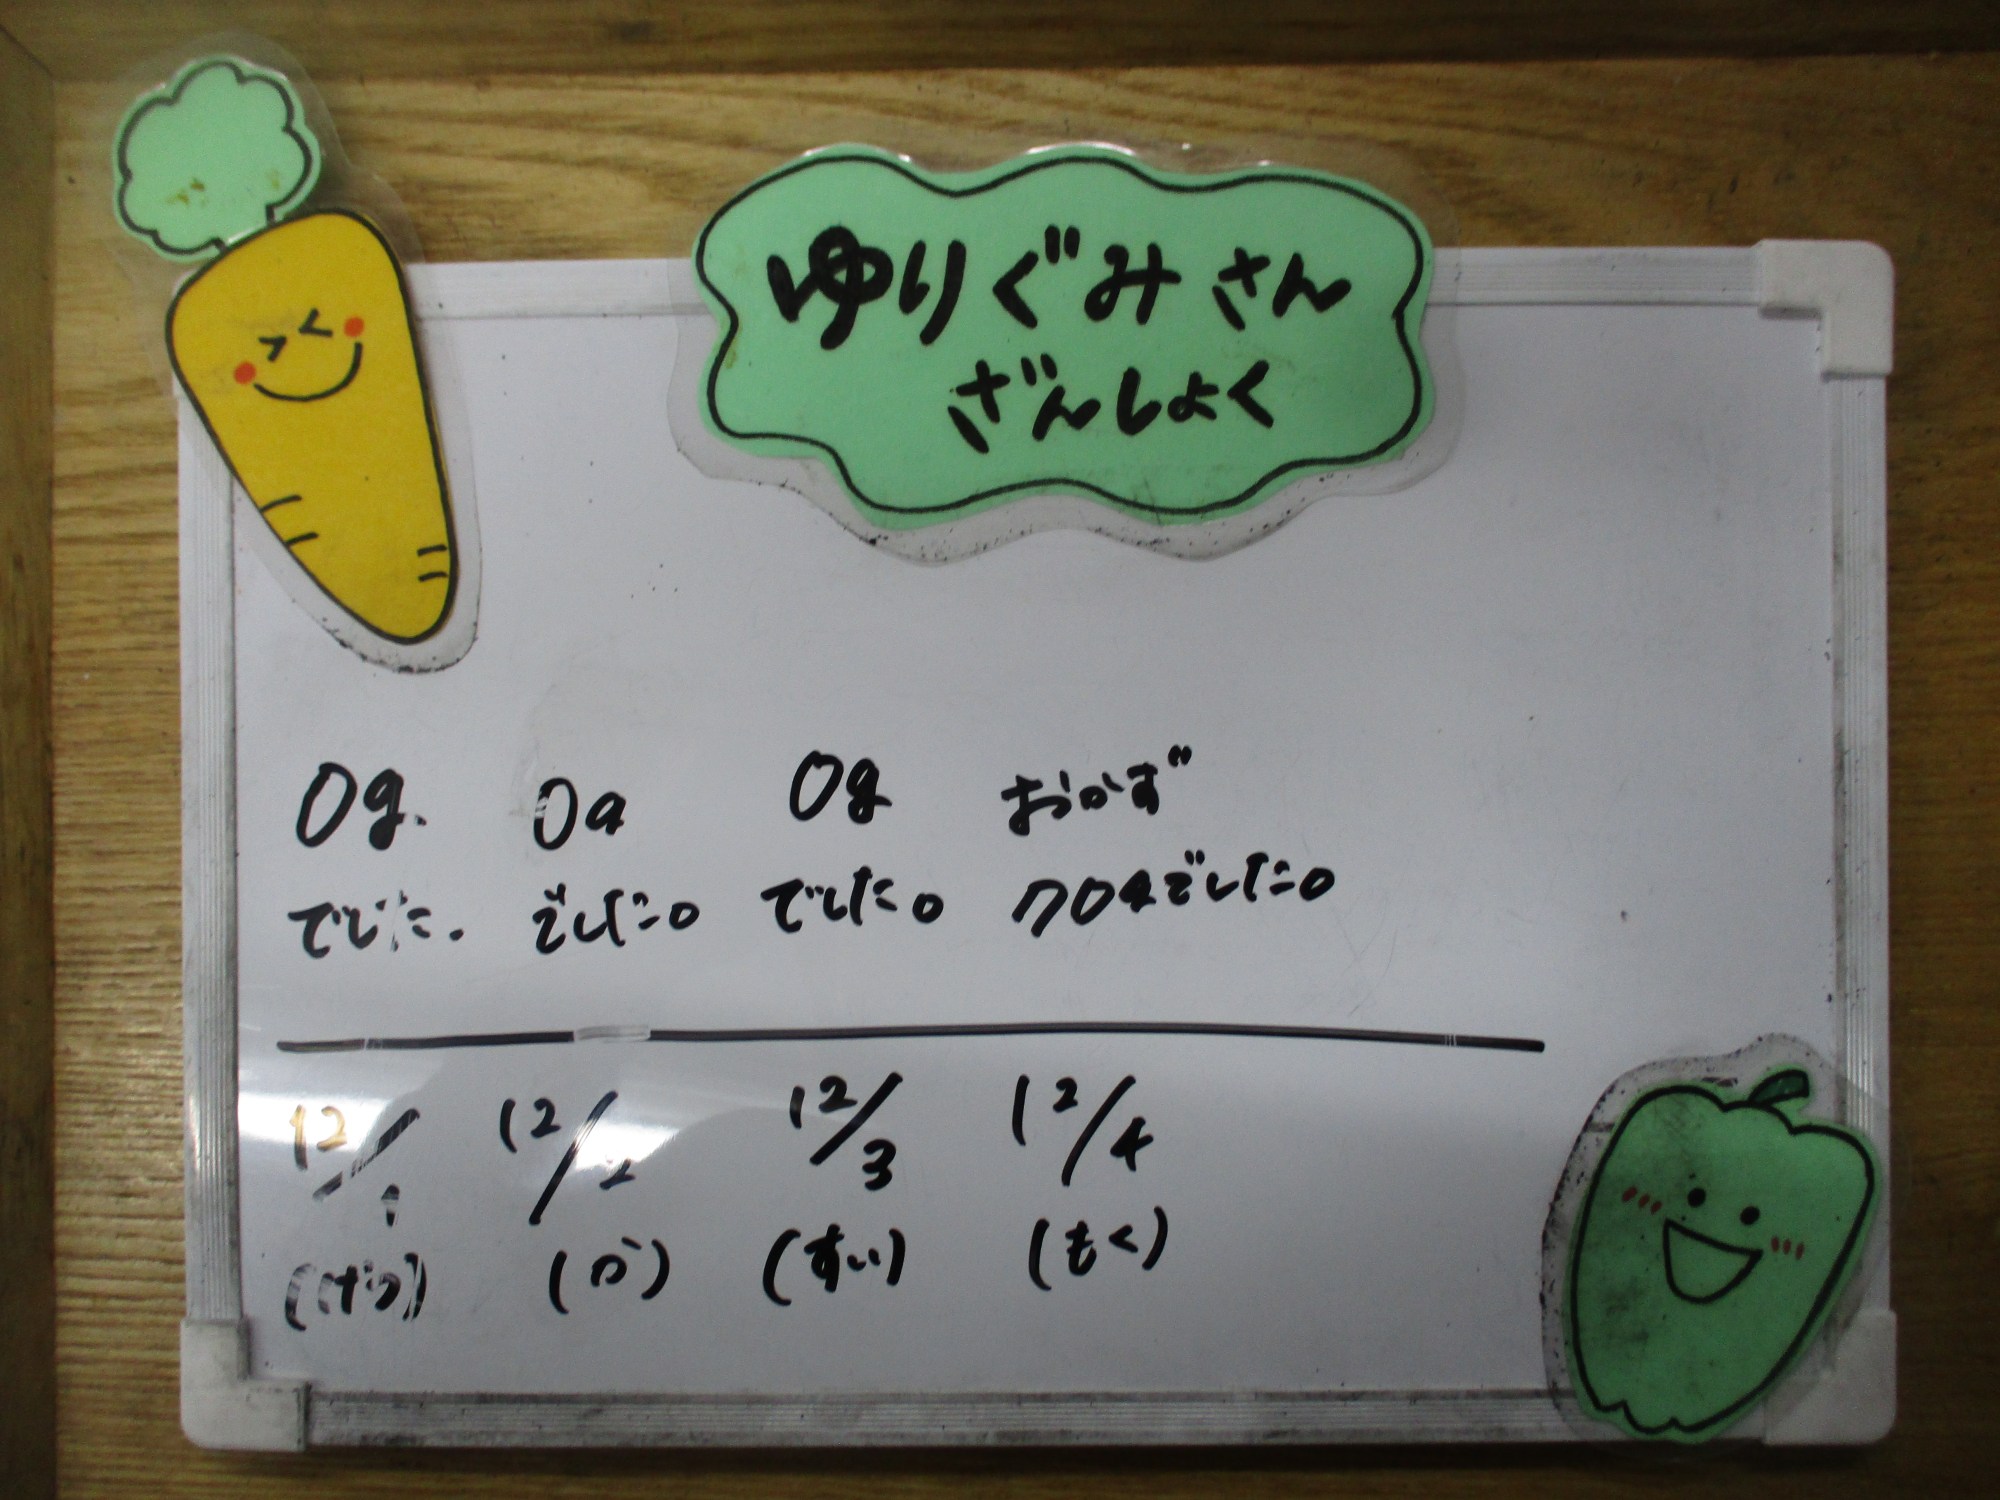 ゆりぐみさん
ざんしょく
0g.
でした.
0g
でした。
0g
でした。
おかず
70gでした。
12/1
(げつ)
12/2
(か)
12/3
(すい)
12/4
(もく)